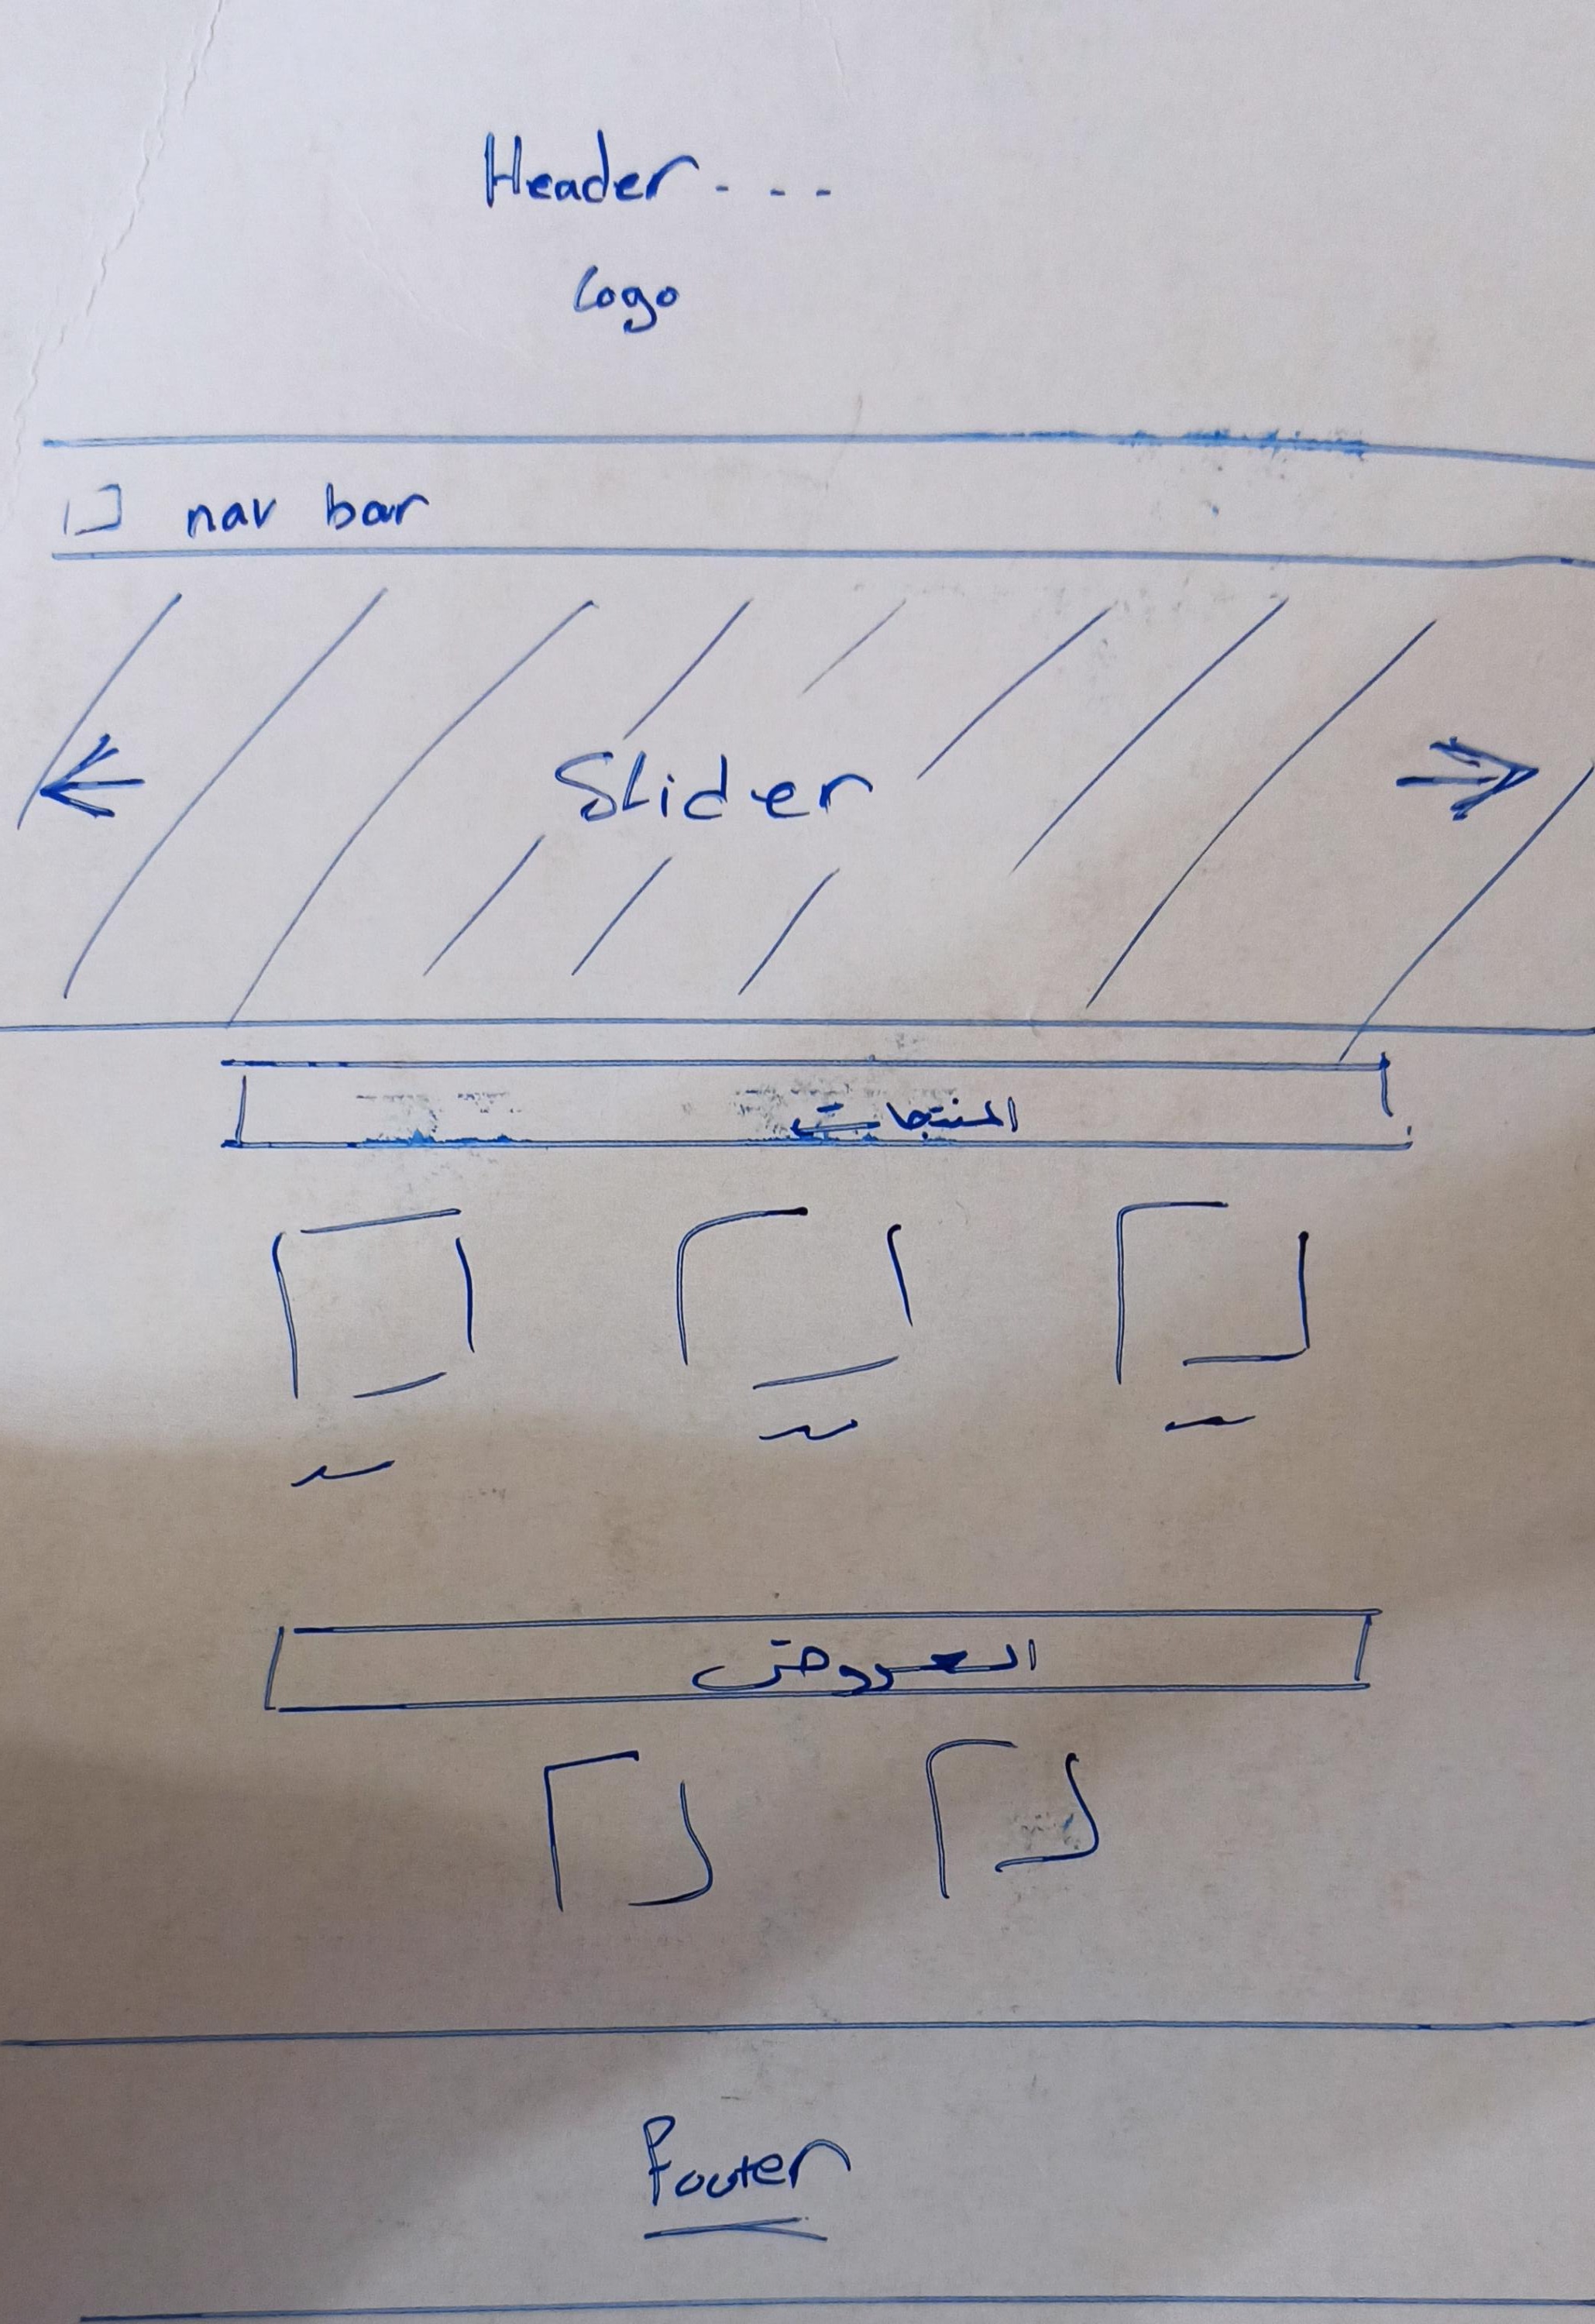 Header - - -
logo
nav bar
Slider
المنتجات
العروض
Footer